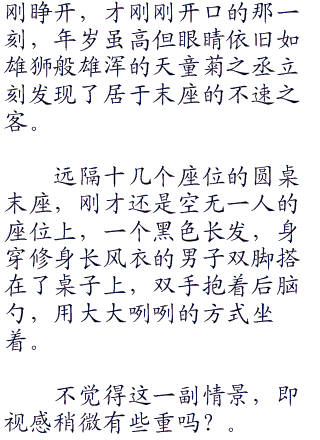 刚睁开，才刚刚开口的那一
刻，年岁虽高但眼睛依旧如
雄狮般雄浑的天童菊之丞立
刻发现了居于末座的不速之
客。
远隔十几个座位的圆桌
末座，刚才还是空无一人的
座位上，一个黑色长发，身
穿修身长风衣的男子双脚搭
在了桌子上，双手抱着后脑
勺，用大大咧咧的方式坐
着。
不觉得这一副情景，即
视感稍微有些重吗？。